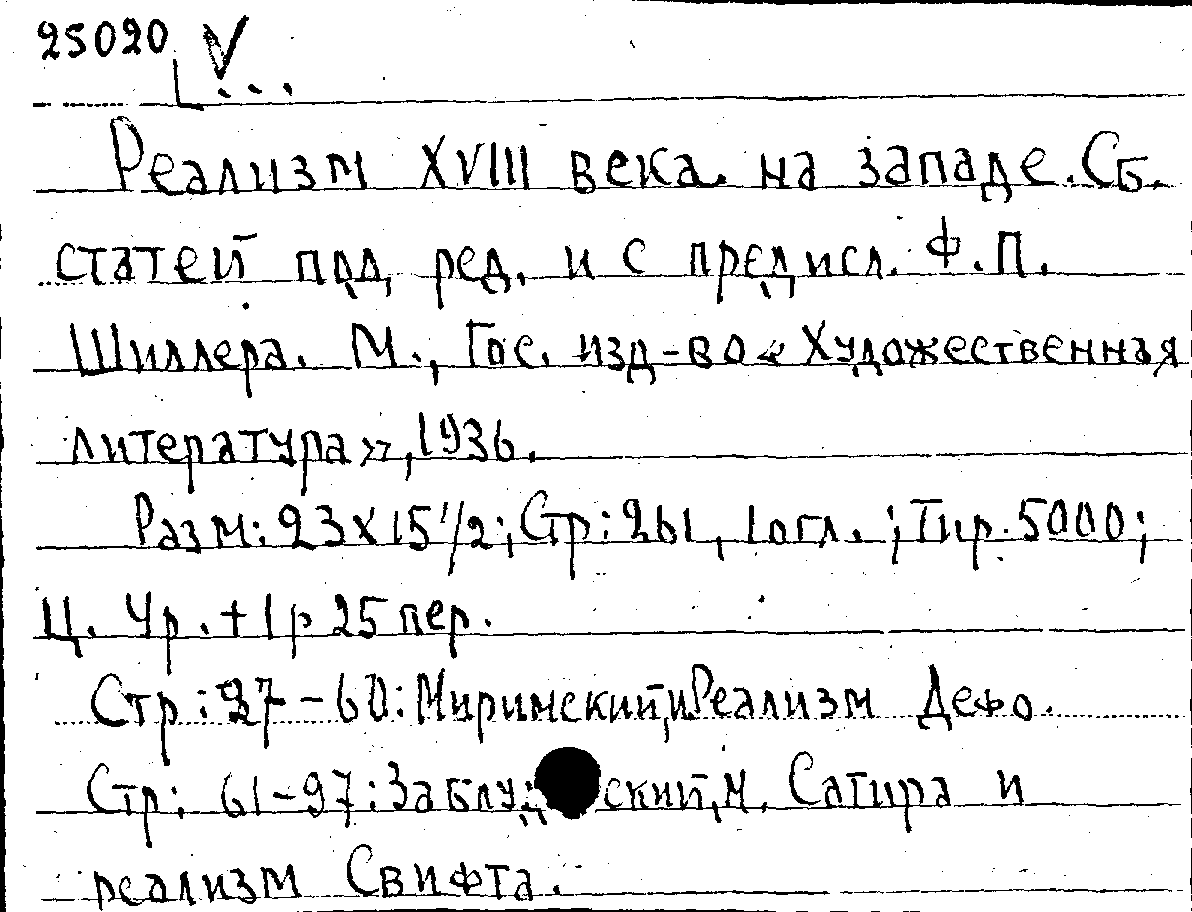 25020 V
Реализм XVIII века на западе. Сб.
статей под ред. и с предисл. Ф.П.
Шиллера. М., Гос. изд-во «Художественная
литература», 1936.
Разм: 23х15 1/2; Стр: 261, 1 огл.; Тир. 5000;
Ц. 4р. + 1р 25 пер.
Стр: 27-60: Миримский, И Реализм Дефо.
Стр: 61-97: Заблуд ский, М. Сатира и
реализм Свифта.